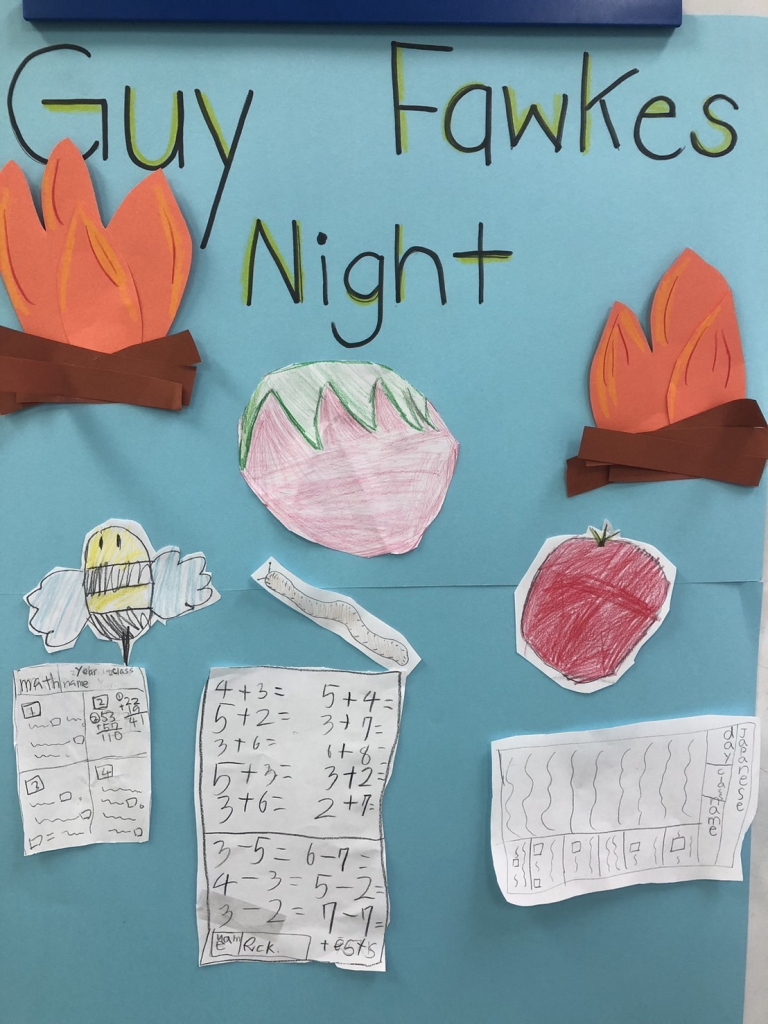 Guy Fawkes
Night
Year class
math name
1
2
23
+19
41
2 53
+57
110
3
4
4+3= 5+4=
5+2= 3+7=
3+6= 1+8=
5+3= 3+2=
3+6= 2+7=
3-5= 6-7=
4-3= 5-2=
3-2= 7-7=
name
Japanese
day class name